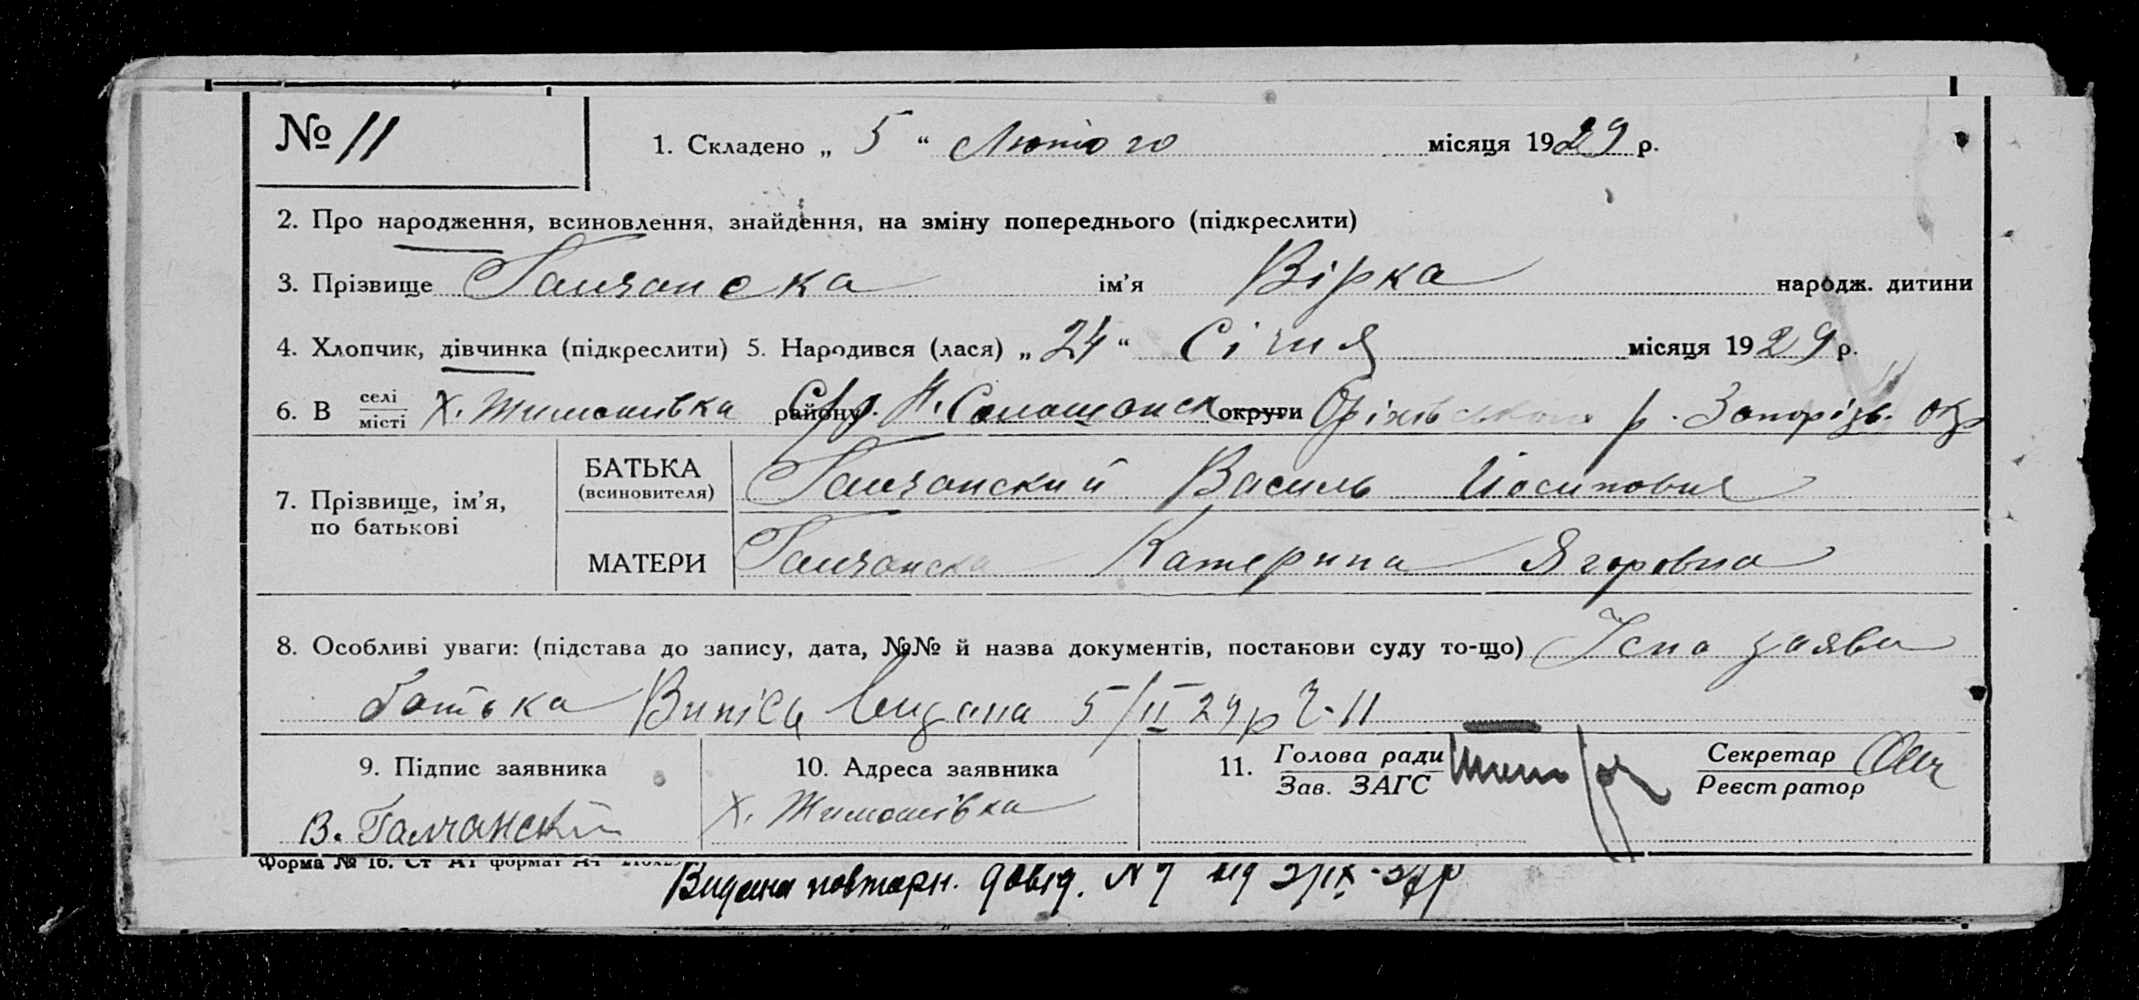 № 11
1. Складено „ 5 “ Лютого місяця 1929 р.
2. Про народження, всиновлення, знайдення, на зміну попереднього (підкреслити)
3. Прізвище Галчанска ім’я Вірка народж. дитини
4. Хлопчик, дівчинка (підкреслити) 5. Народився (лася) „ 24 “ Січня місяця 1929 р.
6. В селі/місті х. Тимошівка району округи Оріхівського р. Запорізь. окр
7. Прізвище, ім’я, по батькові
БАТЬКА (всиновителя) Галчанский Василь Йосипович
МАТЕРИ Галчанска Катерина Ягоровна
8. Особливі уваги: (підстава до запису, дата, №№ й назва документів, постакови суду то-що) заява
батька Випіс видана 5/II 29 р Ч-11
9. Підпис заявника
В. Галчанский
10. Адреса заявника
х. Тимошівка
11. Голова ради
Зав. ЗАГС
Секретар
Реєстратор
Форма № 1б. Ст А1 формат А4
Видана повторн. довід. N 7 від